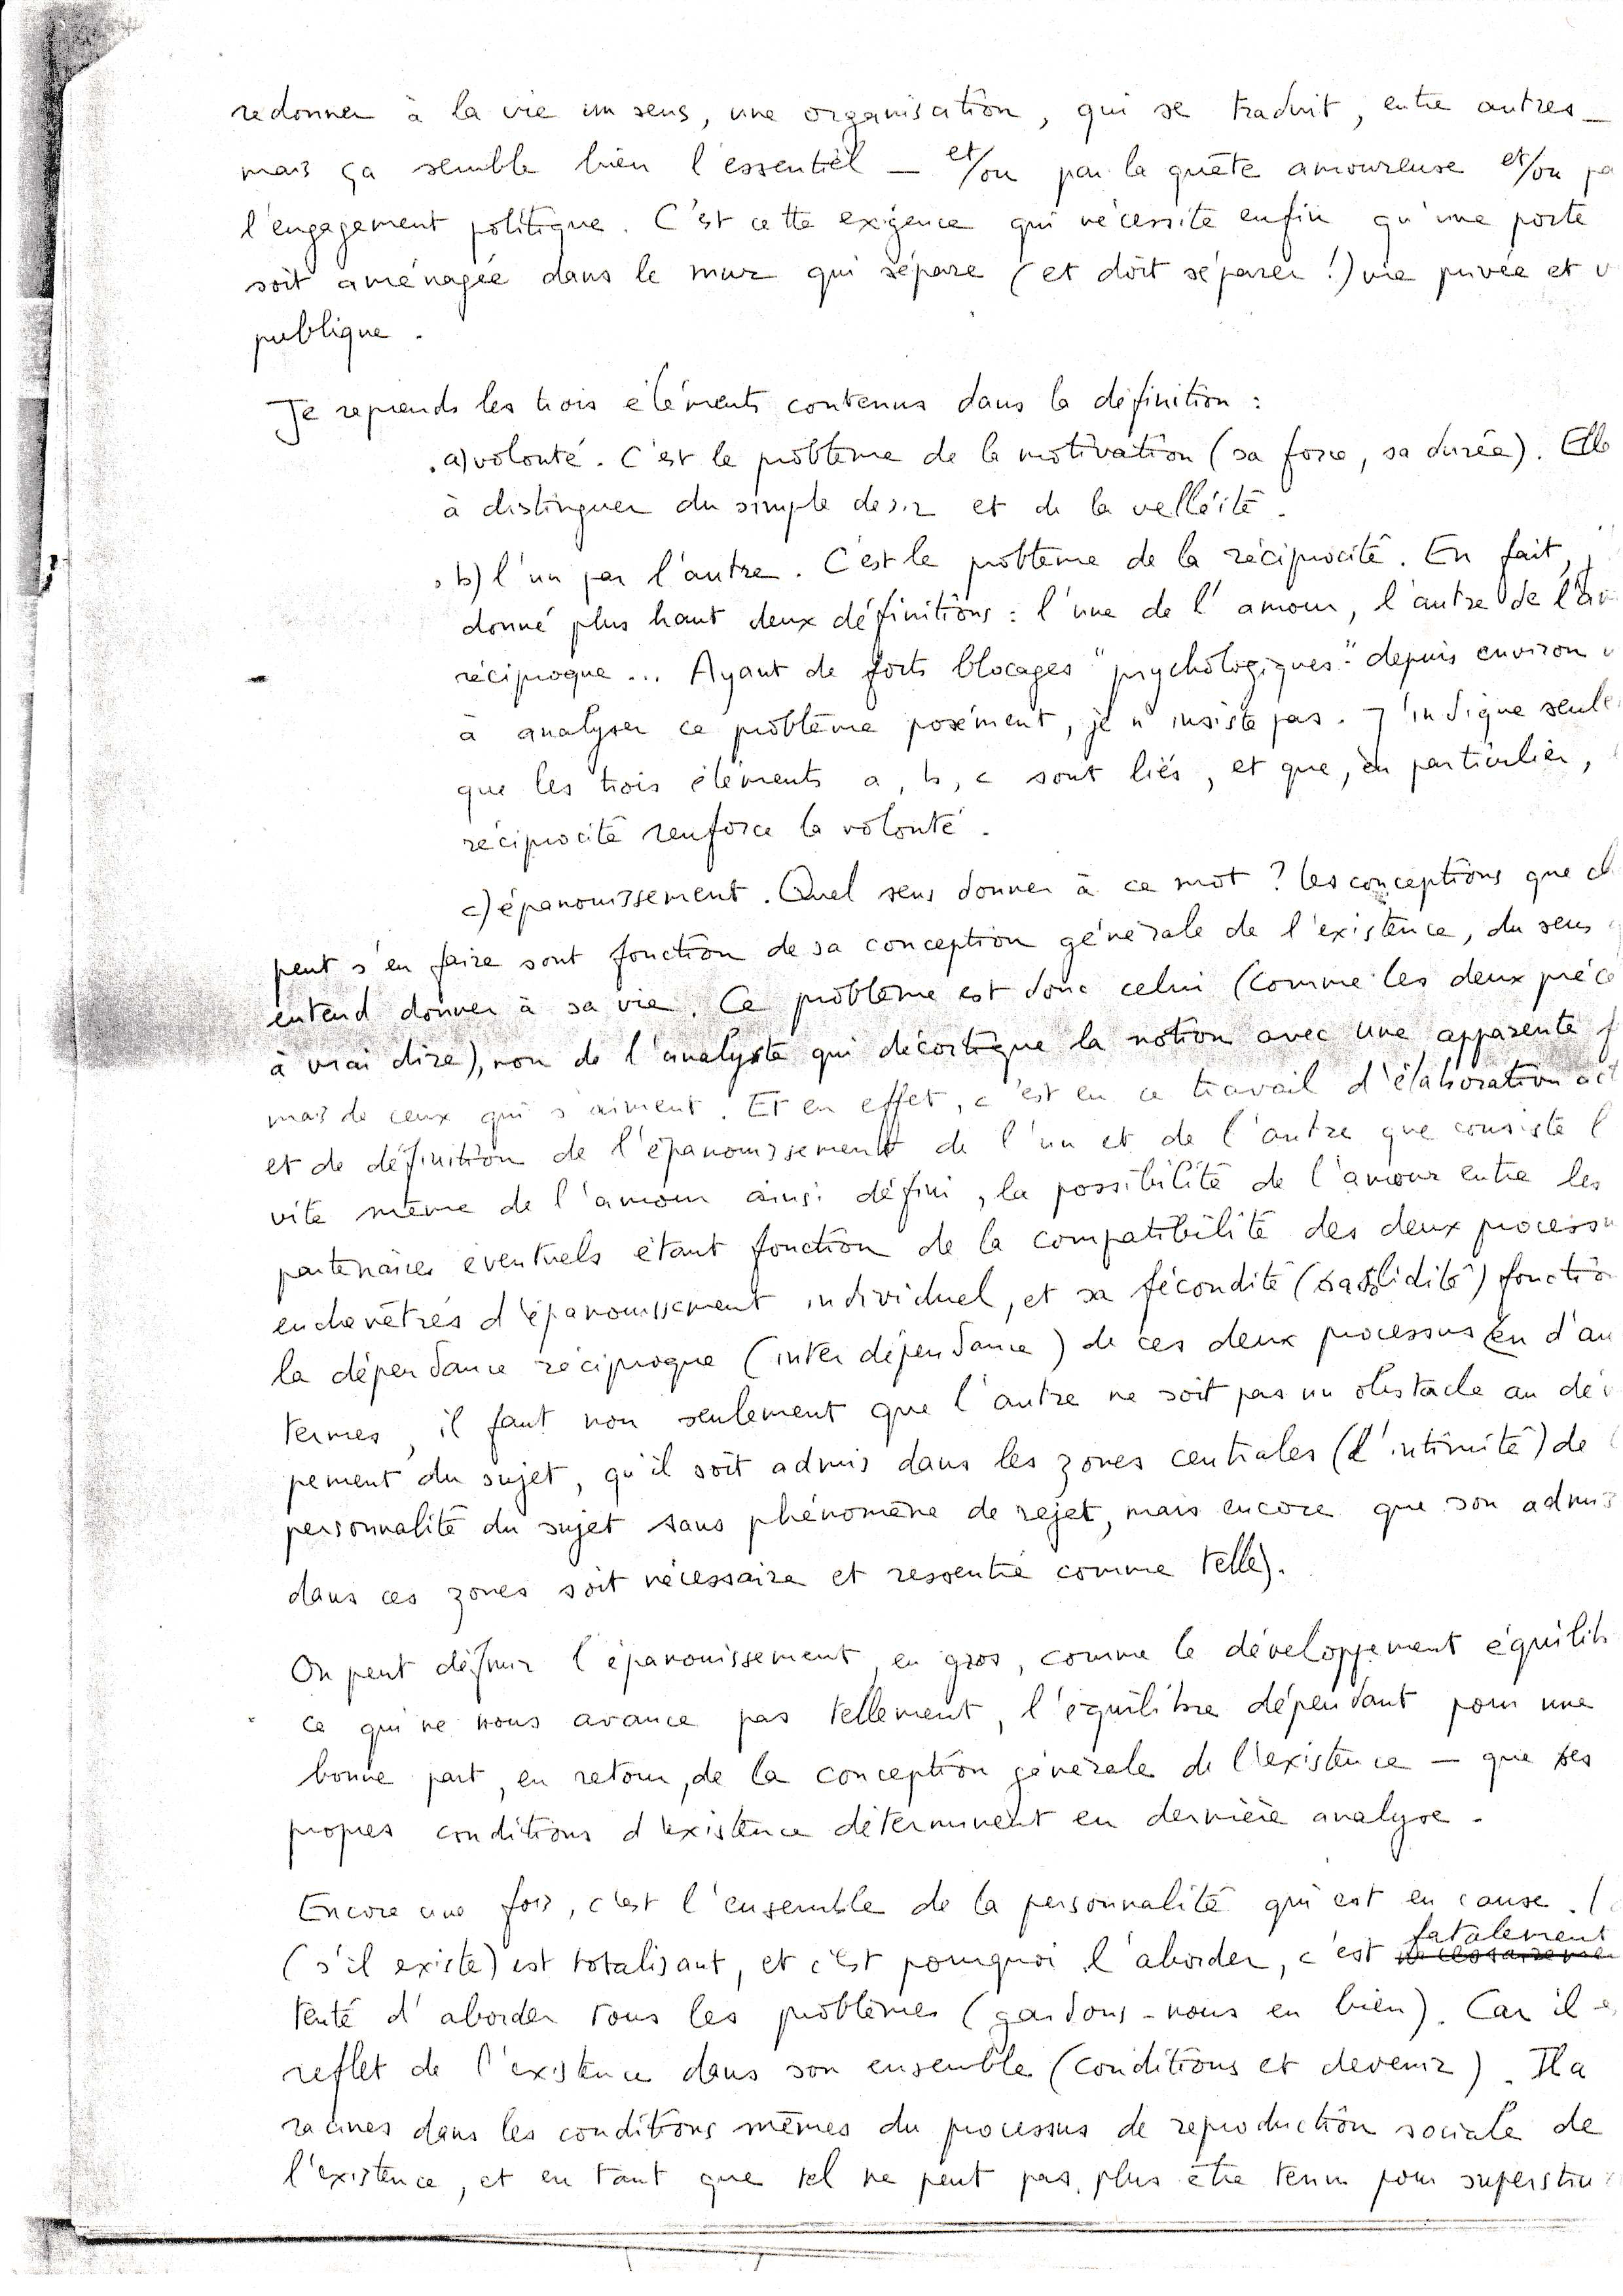 redonner à la vie un sens, une organisation, qui se traduit, entre autres –
mais ça semble bien l'essentiel – et/ou par la quête amoureuse et/ou pa
l'engagement politique. C'est cette exigence qui nécessite enfin qu'une porte
soit aménagée dans le mur qui sépare (et doit séparer !) vie privée et v
publique.
Je reprends les trois éléments contenus dans la définition :
. a) volonté. C'est le problème de la motivation (sa force, sa durée). Elle
à distinguer du simple desir et de la velléité.
. b) l'un par l'autre. C'est le problème de la réciprocité. En fait, j'
donné plus haut deux définitions : l'une de l'amour, l'autre de l'am
réciproque ... Ayant de forts blocages "psychologiques" depuis environ
à analyser ce problème posément, je n'insiste pas. J'indique seule
que les trois éléments a, b, c sont liés, et que, en particulier,
réciprocité renforce la volonté.
c) épanouissement. Quel sens donner à ce mot ? les conceptions que ch
peut s'en faire sont fonction de sa conception générale de l'existence, du sens
entend donner à sa vie. Ce problème est donc celui (comme les deux préce
à vrai dire), non de l'analyste qui décortique la notion avec une apparente f
mais de ceux qui s'aiment. Et en effet, c'est en ce travail d'élaboration act
et de définition de l'épanouissement de l'un et de l'autre que consiste l
vité même de l'amour ainsi défini, la possibilité de l'amour entre les
partenaires éventuels étant fonction de la compatibilité des deux processu
enchevêtrés d'épanouissement individuel, et sa fécondité (sa solidité) fonction
la dépendance réciproque (interdépendance) de ces deux processus (en d'au
termes, il faut non seulement que l'autre ne soit pas un obstacle au dév
pement du sujet, qu'il soit admis dans les zones centrales (l'intimité) de
personnalité du sujet sans phénomène de rejet, mais encore que son admis
dans ces zones soit nécessaire et ressentie comme telle).
On peut définir l'épanouissement, en gros, comme le développement équilib
ce qui ne nous avance pas tellement, l'équilibre dépendant pour une
bonne part, en retour, de la conception générale de l'existence – que ses
propres conditions d'existence déterminent en dernière analyse.
Encore une fois, c'est l'ensemble de la personnalité qui est en cause. l
(s'il existe) est totalisant, et c'est pourquoi l'aborder, c'est fatalement
tenté d'aborder tous les problèmes (gardons-nous en bien). Car il e
reflet de l'existence dans son ensemble (conditions et devenir). Il a
racines dans les conditions mêmes du processus de reproduction sociale de
l'existence, et en tant que tel ne peut pas plus être tenu pour superstru